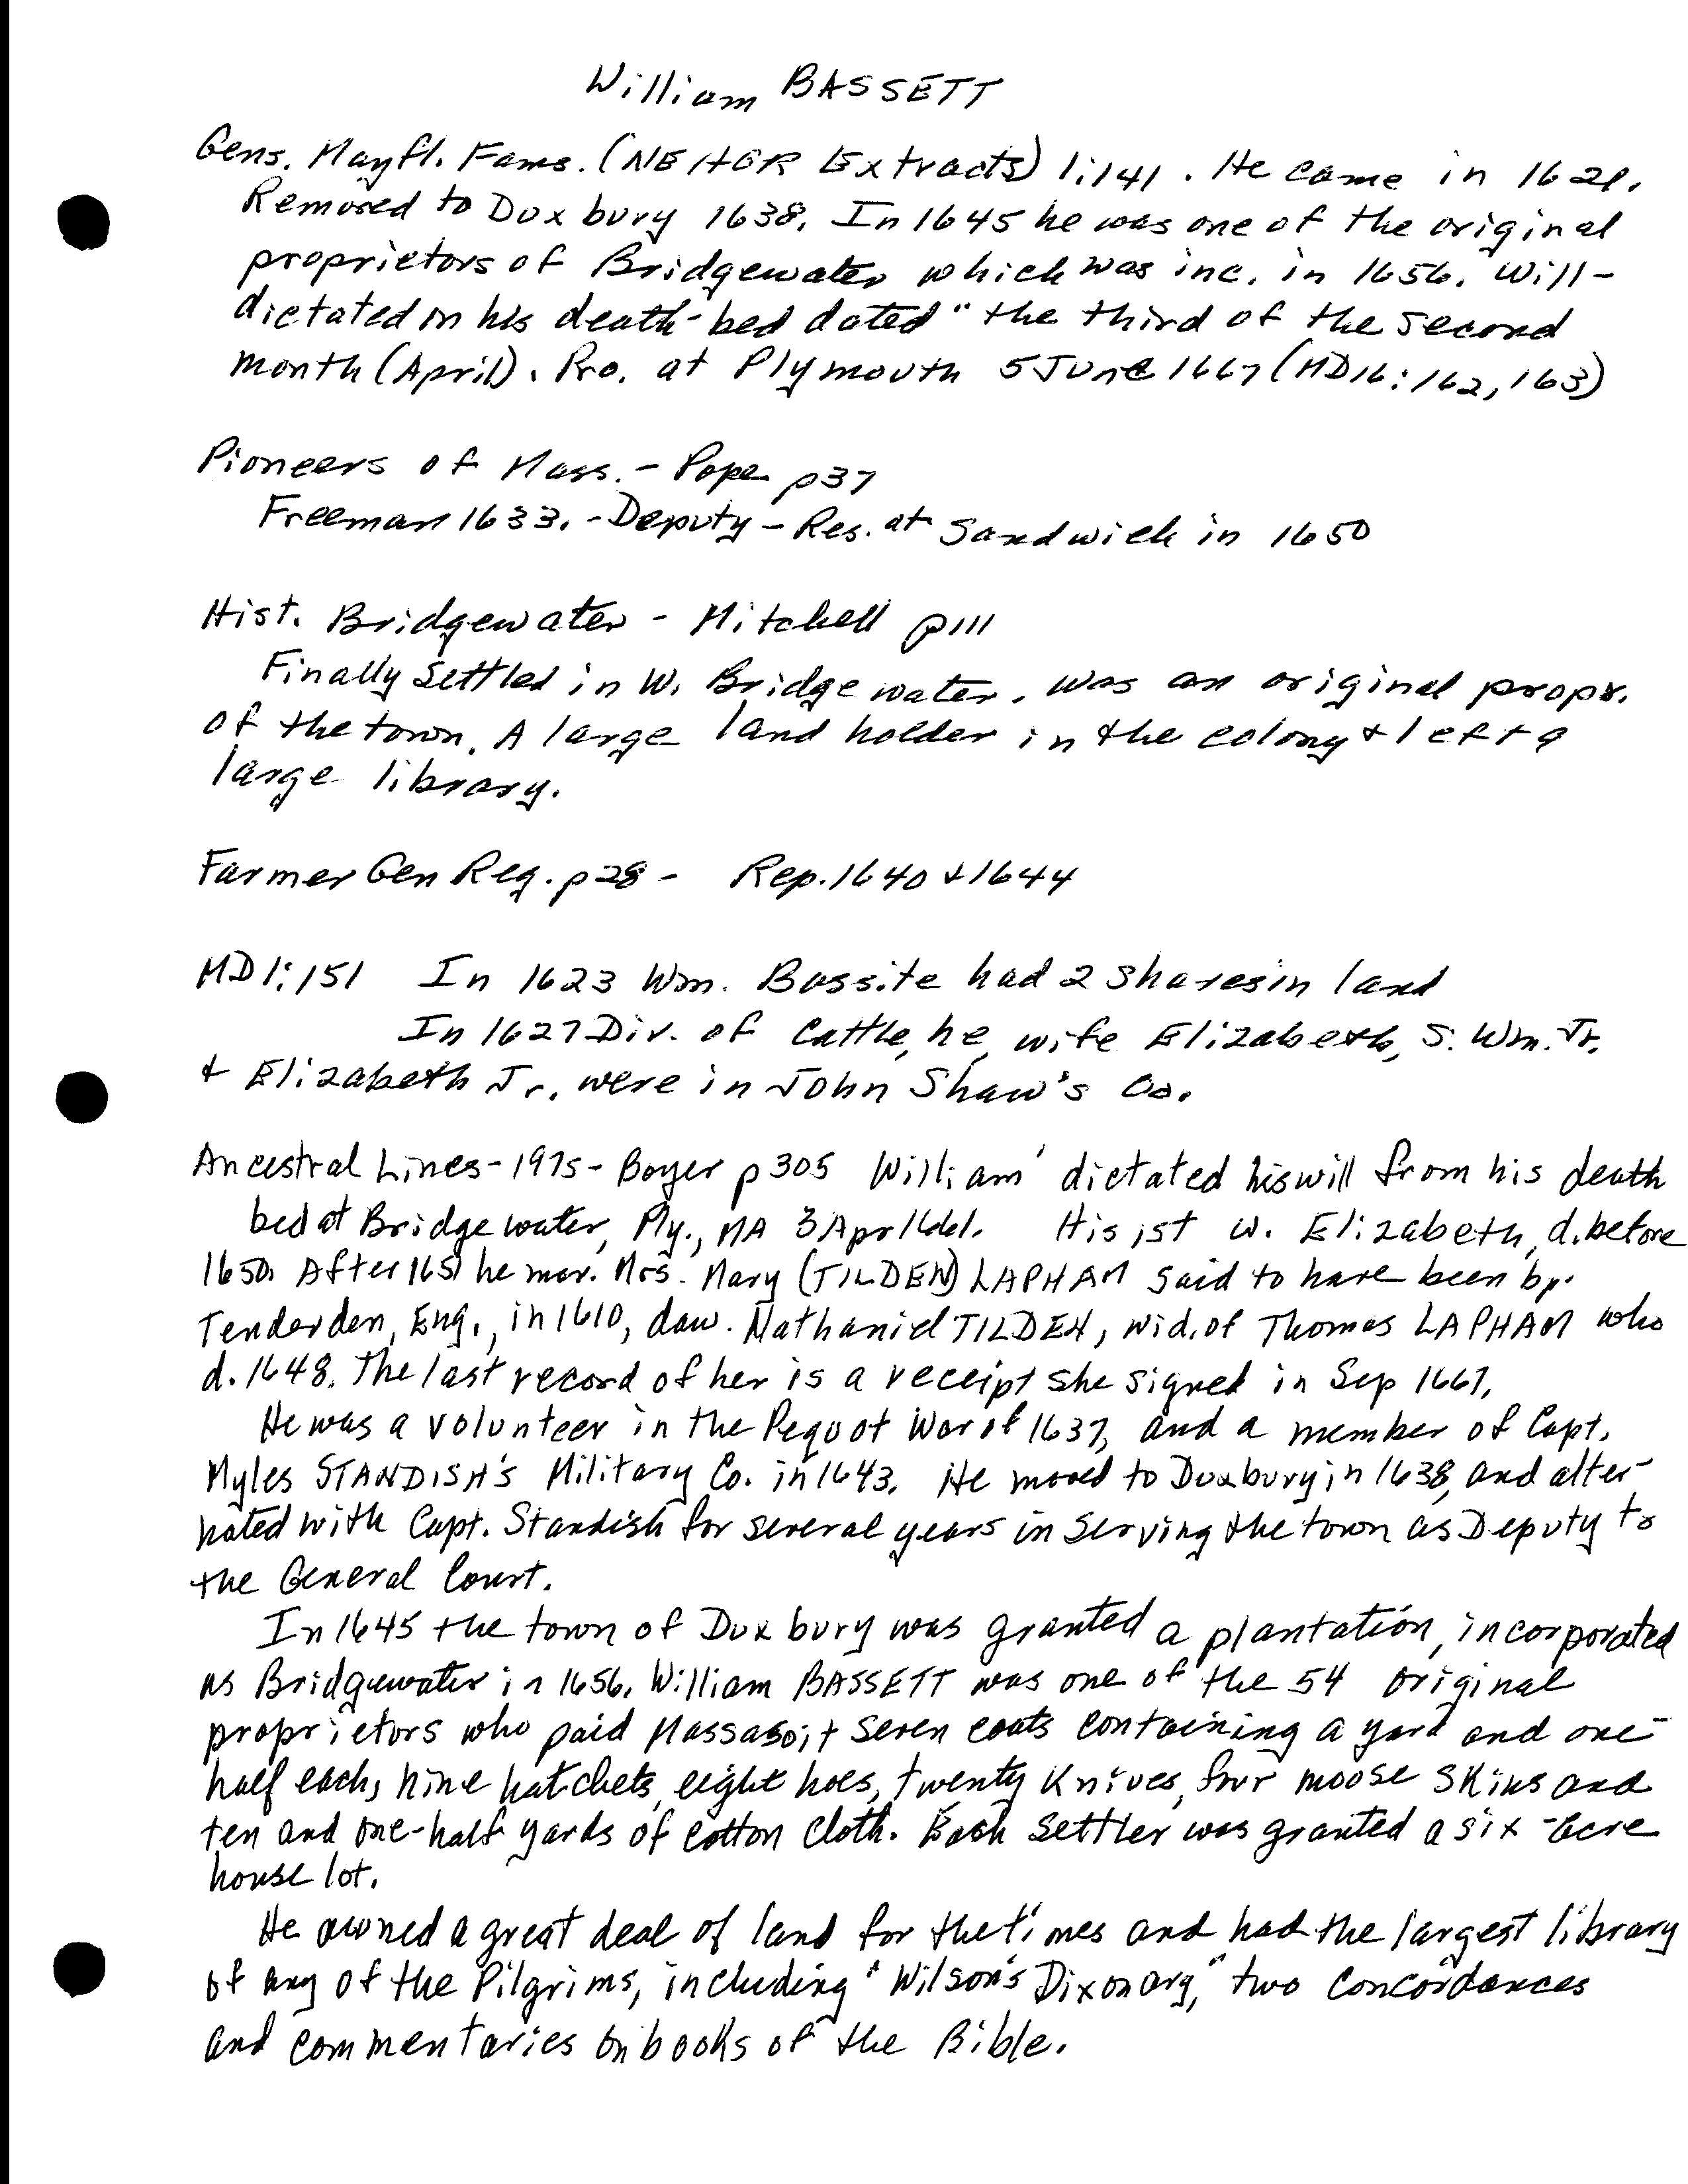 William BASSETT
Gens. Mayfl. Fams. (NEHGR Extracts) 1:141. He came in 1621.
Removed to Duxbury 1638. In 1645 he was one of the original
proprietors of Bridgewater which was inc. in 1656. Will-
dictated on his death-bed dated "the third of the second
month (April). Pro. at Plymouth 5 June 1667 (MD16:162, 163)
Pioneers of Mass. - Pope p37
Freeman 1633. - Deputy - Res. at Sandwich in 1650
Hist. Bridgewater - Mitchell p111
Finally settled in W. Bridgewater. was an original propr.
of the town. A large land holder in the colony & left a
large library.
Farmer Gen Reg. p28 - Rep. 1640 & 1644
MD 1:151 In 1623 Wm. Bassite had 2 shares in land
In 1627 Div. of Cattle, he, wife Elizabeth, S. Wm. Jr.
& Elizabeth Jr. were in John Shaw's Co.
Ancestral Lines - 1975 - Boyer p305 William' dictated his will from his death
bed at Bridgewater, Ply., MA 3 Apr 1661. His 1st w. Elizabeth, d. before
1650. After 1651 he mar. Mrs. Mary (TILDEN) LAPHAM said to have been bp.
Tenderden, Eng., in 1610, dau. Nathaniel TILDEN, wid. of Thomas LAPHAM who
d. 1648. The last record of her is a receipt she signed in Sep 1667.
He was a volunteer in the Pequot War of 1637, and a member of Capt.
Myles STANDISH'S Military Co. in 1643. He moved to Duxbury in 1638, and alter-
nated with Capt. Standish for several years in serving the town as Deputy to
the General Court.
In 1645 the town of Duxbury was granted a plantation, incorporated
as Bridgewater in 1656. William BASSETT was one of the 54 original
proprietors who paid Massasoit seven coats containing a yard and one-
half each, nine hatchets, eight hoes, twenty knives, four moose skins and
ten and one-half yards of cotton cloth. Each settler was granted a six-acre
house lot.
He owned a great deal of land for the times and had the largest library
of any of the Pilgrims, including "Wilson's Dixonary," two concordances
and commentaries on books of the Bible.